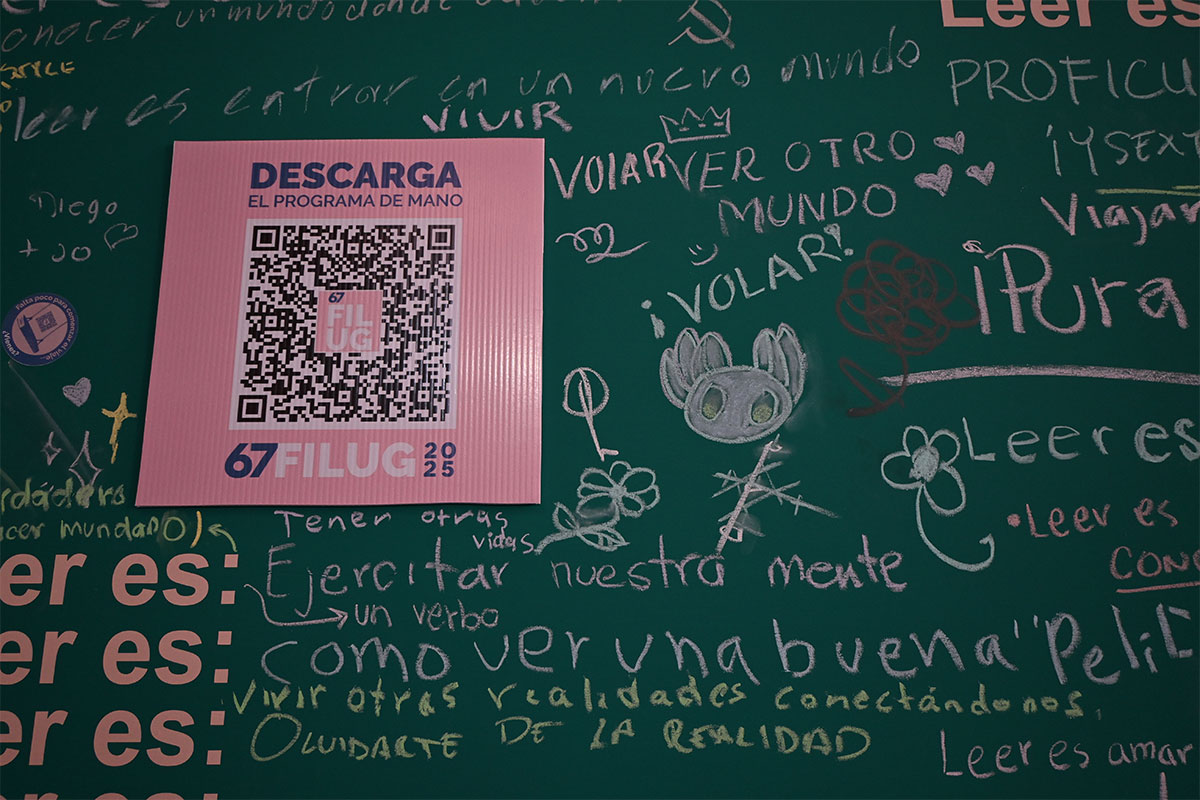 conocer un mundo donde
Leer es
STYLE
leer es entrar en un nuevo mundo
PROFICU
VIVIR
VOlAR
VER OTRO
MUNDO
¡Y SEXT
Viajar
Diego
+ JO
¡VOLAR!
¡Pura
DESCARGA
EL PROGRAMA DE MANO
67
FIL
UG
67FILUG 20
25
Falta poco para comenzar el viaje
¿Vienes?
Leer es
Leer es
CON
rdádero
acer mundano)
Tener otras
vidas
er es:
Ejercitar nuestra mente
un verbo
er es:
Como ver una buena "Pelic
Vivir otras realidades conectándonos,
er es:
OlVIDARTE DE lA REALIDAD
Leer es amar
er es: